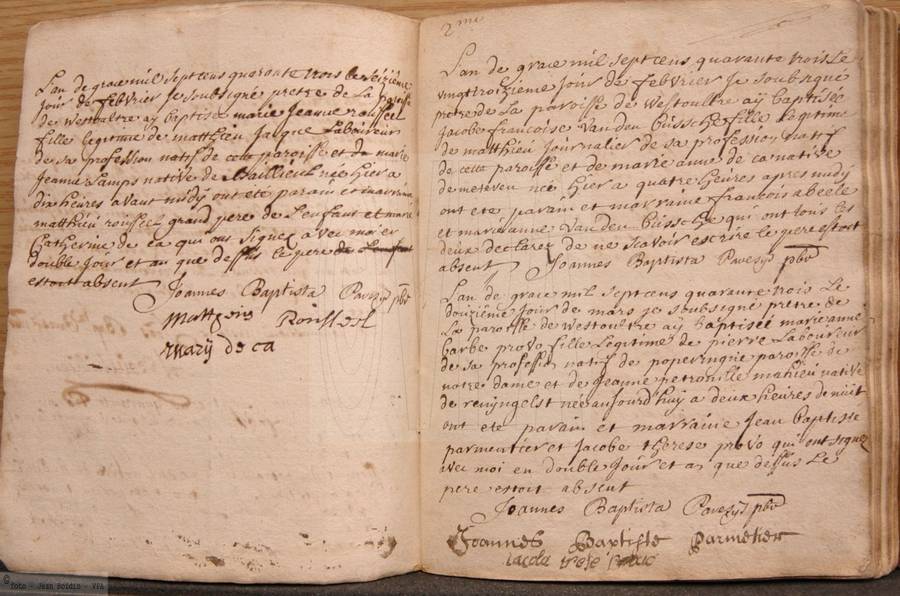 L'an de grace mil septcens quaronte trois le seizième
jour de febvrier je soubsigné pretre de La paroisse
de westoultre aÿ baptisé marie Jeanne roussel
fille legitime de matthieu Jacque Laboureur
de sa profession natif de cette paroisse et de marie
Jeanne Lamps native de Bailleul née hier a
dix heures avant midÿ ont eté parain et marraine
matthieu roussel grand pere de l'enfant et marie
Catherine de ca qui ont signez avec moi en
double Jour et an que dessus le pere de l'enfant
estoit absent Joannes Baptista Pavezÿ pbr
Mattheu Rousseel
marÿ de ca
2me
L'an de grace mil septcens quarante trois Le
vingttroizieme jour de febvrier Je soubsigné
pretre de La paroisse de westoultre aÿ baptisée
Jacobe francoise Vanden bussche fille Legitime
de matthieu journalier de sa profession natif
de cette paroisse et de marie anne de ca native
de meteren née hier a quatre heures apres midÿ
ont eté parain et marraine francois abeele
et marianne Vanden bussche qui ont tous les
deux declarez de ne scavoir escrire le pere estoit
absent Joannes Baptista Pavezÿ pbr
L'an de grace mil septcens quarente trois Le
douzieme jour de mars je soubsigné pretre de
La paroisse de westoultre aÿ baptisée marie anne
barbe provo fille Legitime de pierre Laboureur
de sa profession natif de poperingue paroisse de
notre dame et de Jeanne petronille mahieu native
de reningelst née aujourd'huy a deux heures de nuit
ont eté parain et marraine Jean baptiste
parmentier et Jacobe therese provo qui ont signez
avec moi en double Jour et an que dessus Le
pere estoit absent
Joannes Baptista Pavezÿ pbr
Joannes Baptiste Parmetier
Jacoba
© foto - Jean Boidin - VFA